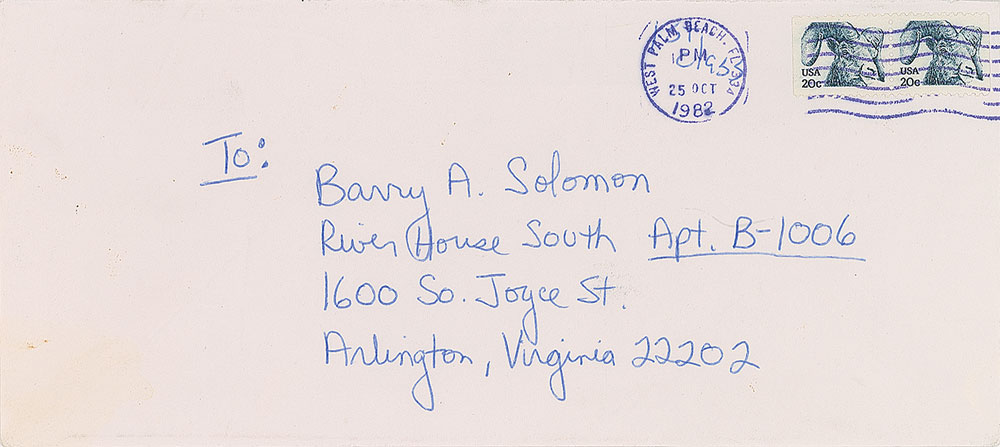 WEST PALM BEACH, FL 334
PM
25 OCT
1982
USA
20c
USA
20c
To:
Barry A. Solomon
River House South Apt. B-1006
1600 So. Joyce St.
Arlington, Virginia 22202